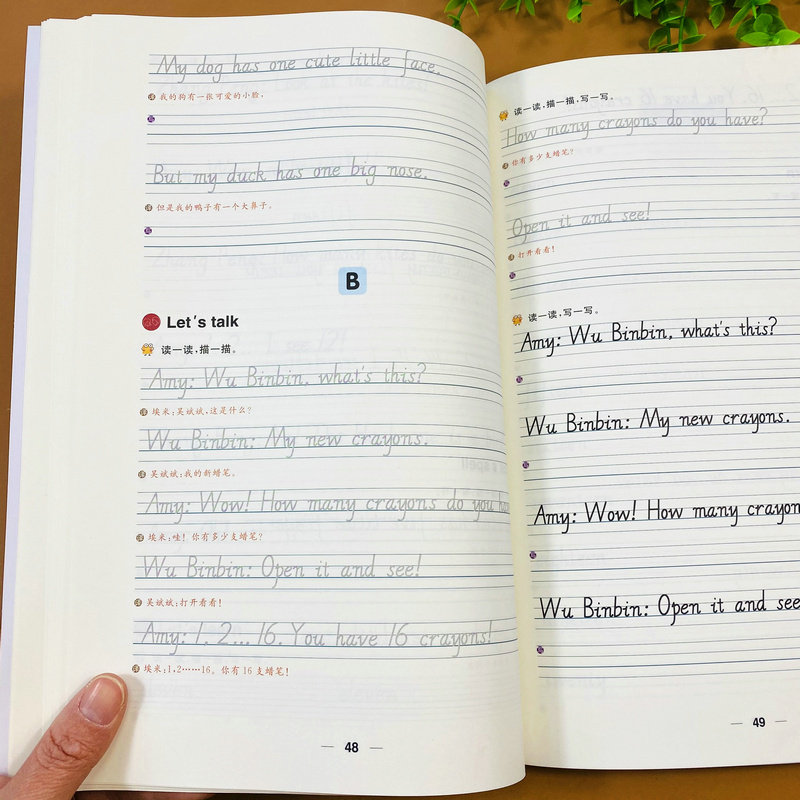 My dog has one cute little face.
译 我的狗有一张可爱的小脸,
写
But my duck has one big nose.
译 但是我的鸭子有一个大鼻子。
写
B
Let's talk
读一读,描一描。
Amy: Wu Binbin, what's this?
译 埃米:吴斌斌,这是什么?
Wu Binbin: My new crayons.
译 吴斌斌:我的新蜡笔。
Amy: Wow! How many crayons do you have
译 埃米:哇! 你有多少支蜡笔?
Wu Binbin: Open it and see!
译 吴斌斌:打开看看!
Amy: 1, 2... 16. You have 16 crayons!
译 埃米:1,2……16。你有 16 支蜡笔!
— 48 —
读一读,描一描,写一写。
How many crayons do you have?
译 你有多少支蜡笔?
写
Open it and see!
译 打开看看!
写
读一读,写一写。
Amy: Wu Binbin, what's this?
写
Wu Binbin: My new crayons.
写
Amy: Wow! How many crayon
写
Wu Binbin: Open it and see
写
— 49